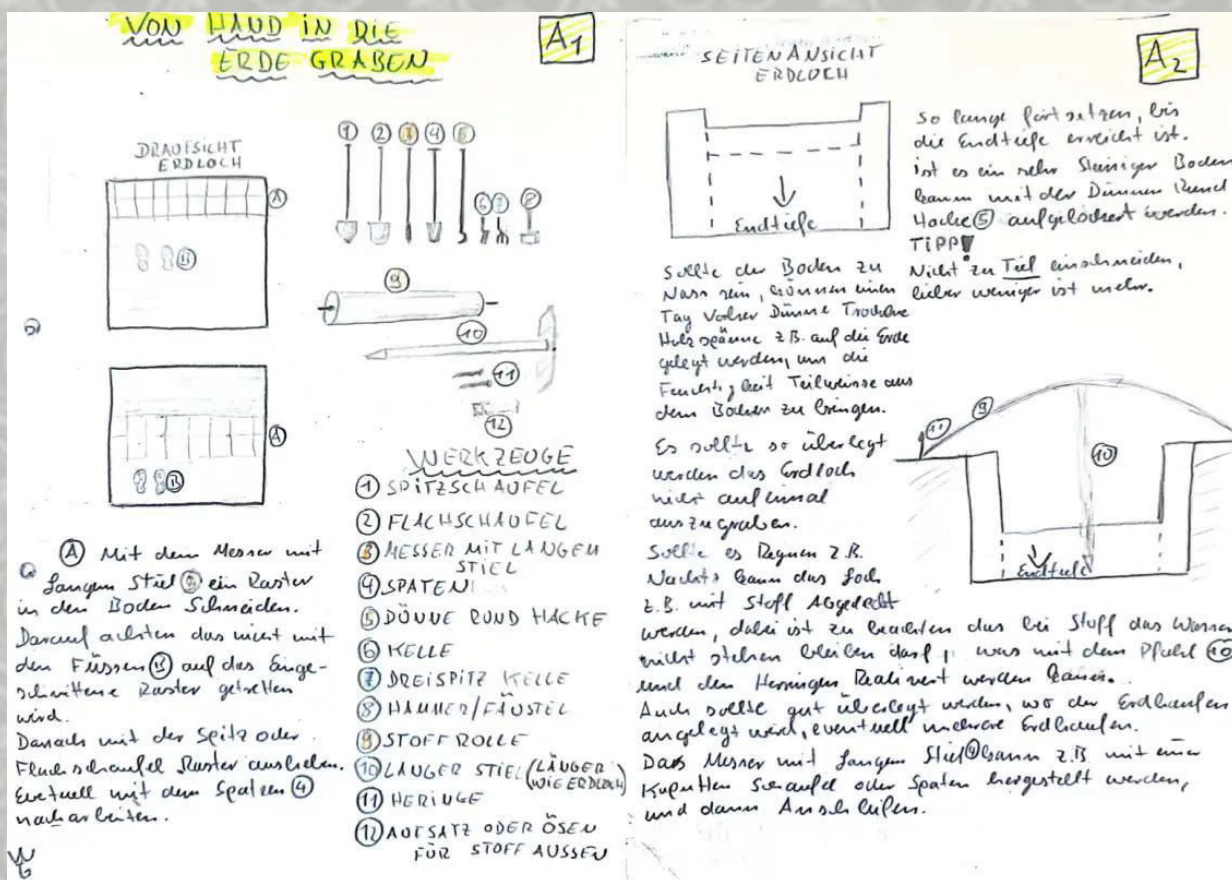 VON HAND IN DIE
ERDE GRABEN
A1
DRAUFSICHT
ERDLOCH
A
B
A
B
1 2 3 4 5
6 7 8
9
10
11
12
WERKZEUGE
1 SPITZSCHAUFEL
2 FLACHSCHAUFEL
3 MESSER MIT LANGEM
STIEL
4 SPATEN
5 DÜNNE RUND HACKE
6 KELLE
7 DREISPITZ KELLE
8 HAMMER/FÄUSTEL
9 STOFF ROLLE
10 LANGER STIEL (LÄNGER
WIE ERDLOCH)
11 HERINGE
12 AUFSATZ ODER ÖSEN
FÜR STOFF AUSSEN
A Mit dem Messer mit
Langem Stiel 3 ein Raster
in den Boden Schneiden.
Darauf achten das nicht mit
den Füssen B auf das Einge-
schnittene Raster getretten
wird.
Danach mit der Spitz oder
Flachschaufel Raster ausheben.
Eventuell mit dem Spaten 4
nacharbeiten.
A2
SEITENANSICHT
ERDLOCH
Endtiefe
So lange fortsetzen, bis
die Endtiefe erreicht ist.
ist es ein sehr Steiniger Boden
kann mit der Dünnen Rund
Hacke 5 aufgelockert werden.
TIPP!
Nicht zu Tief einschneiden,
lieber weniger ist mehr.
Sollte der Boden zu
Nass sein, können einen
Tag Vorher Dünne Trockene
Holzspänne z.B. auf die Erde
gelegt werden, um die
Feuchtigkeit Teilweisse aus
dem Boden zu bringen.
Es sollte so überlegt
werden das Erdloch
nicht auf einmal
auszugraben.
Sollte es Regnen z.B.
Nachts kann das Loch
z.B. mit Stoff Abgedeckt
werden, dabei ist zu beachten das bei Stoff das Wasser
nicht stehen bleiben darf, was mit dem Pfahl 10
und den Herringen Realisiert werden kann.
Auch sollte gut überlegt werden, wo der Erdhaufen
angelegt wird, eventuell mehrere Erdhaufen.
Das Messer mit Langem Stiel kann z.B. mit einer
Kaputten Schaufel oder Spaten hergestellt werden,
und dann Anschleifen.
11
9
10
Endtiefe